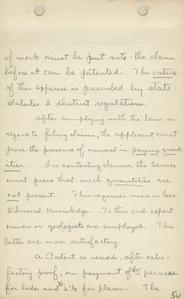 of work must be put into the claim
before it can be patented. The nature
of this expense is prescribed by state
statutes & district regulations.
After complying with the law in
regard to filing claims, the applicant must
prove the presence of mineral in paying quant-
ities. In contesting claims, the
must prove that such quantities are
not present. This requires more or less
technical knowledge. To this end expert
miners or geologists are employed. The
latter are more satisfactory.
A Patent is issued, after satis-
factory proof, on payment of $5 per acre
for lodes and $2½ for placers. The